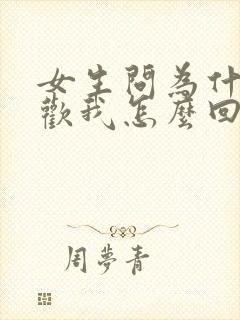 女生問為什
歡我怎麼回
周夢青